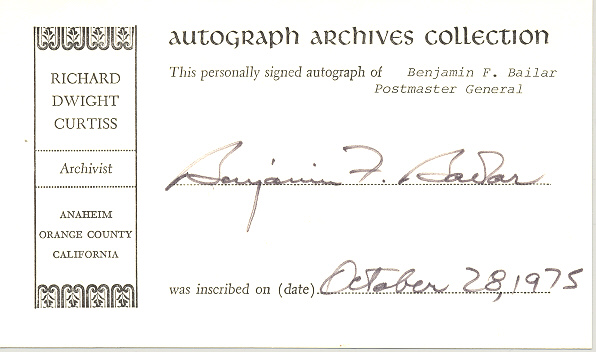 RICHARD
DWIGHT
CURTISS
Archivist
ANAHEIM
ORANGE COUNTY
CALIFORNIA
AUTOGRAPH ARCHIVES COLLECTION
This personally signed autograph of Benjamin F. Bailar
Postmaster General
Benjamin F. Bailar
was inscribed on (date) October 28, 1975